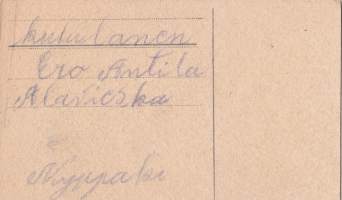 kutulanen
Ero Antila
Alavieska
Nyppaki